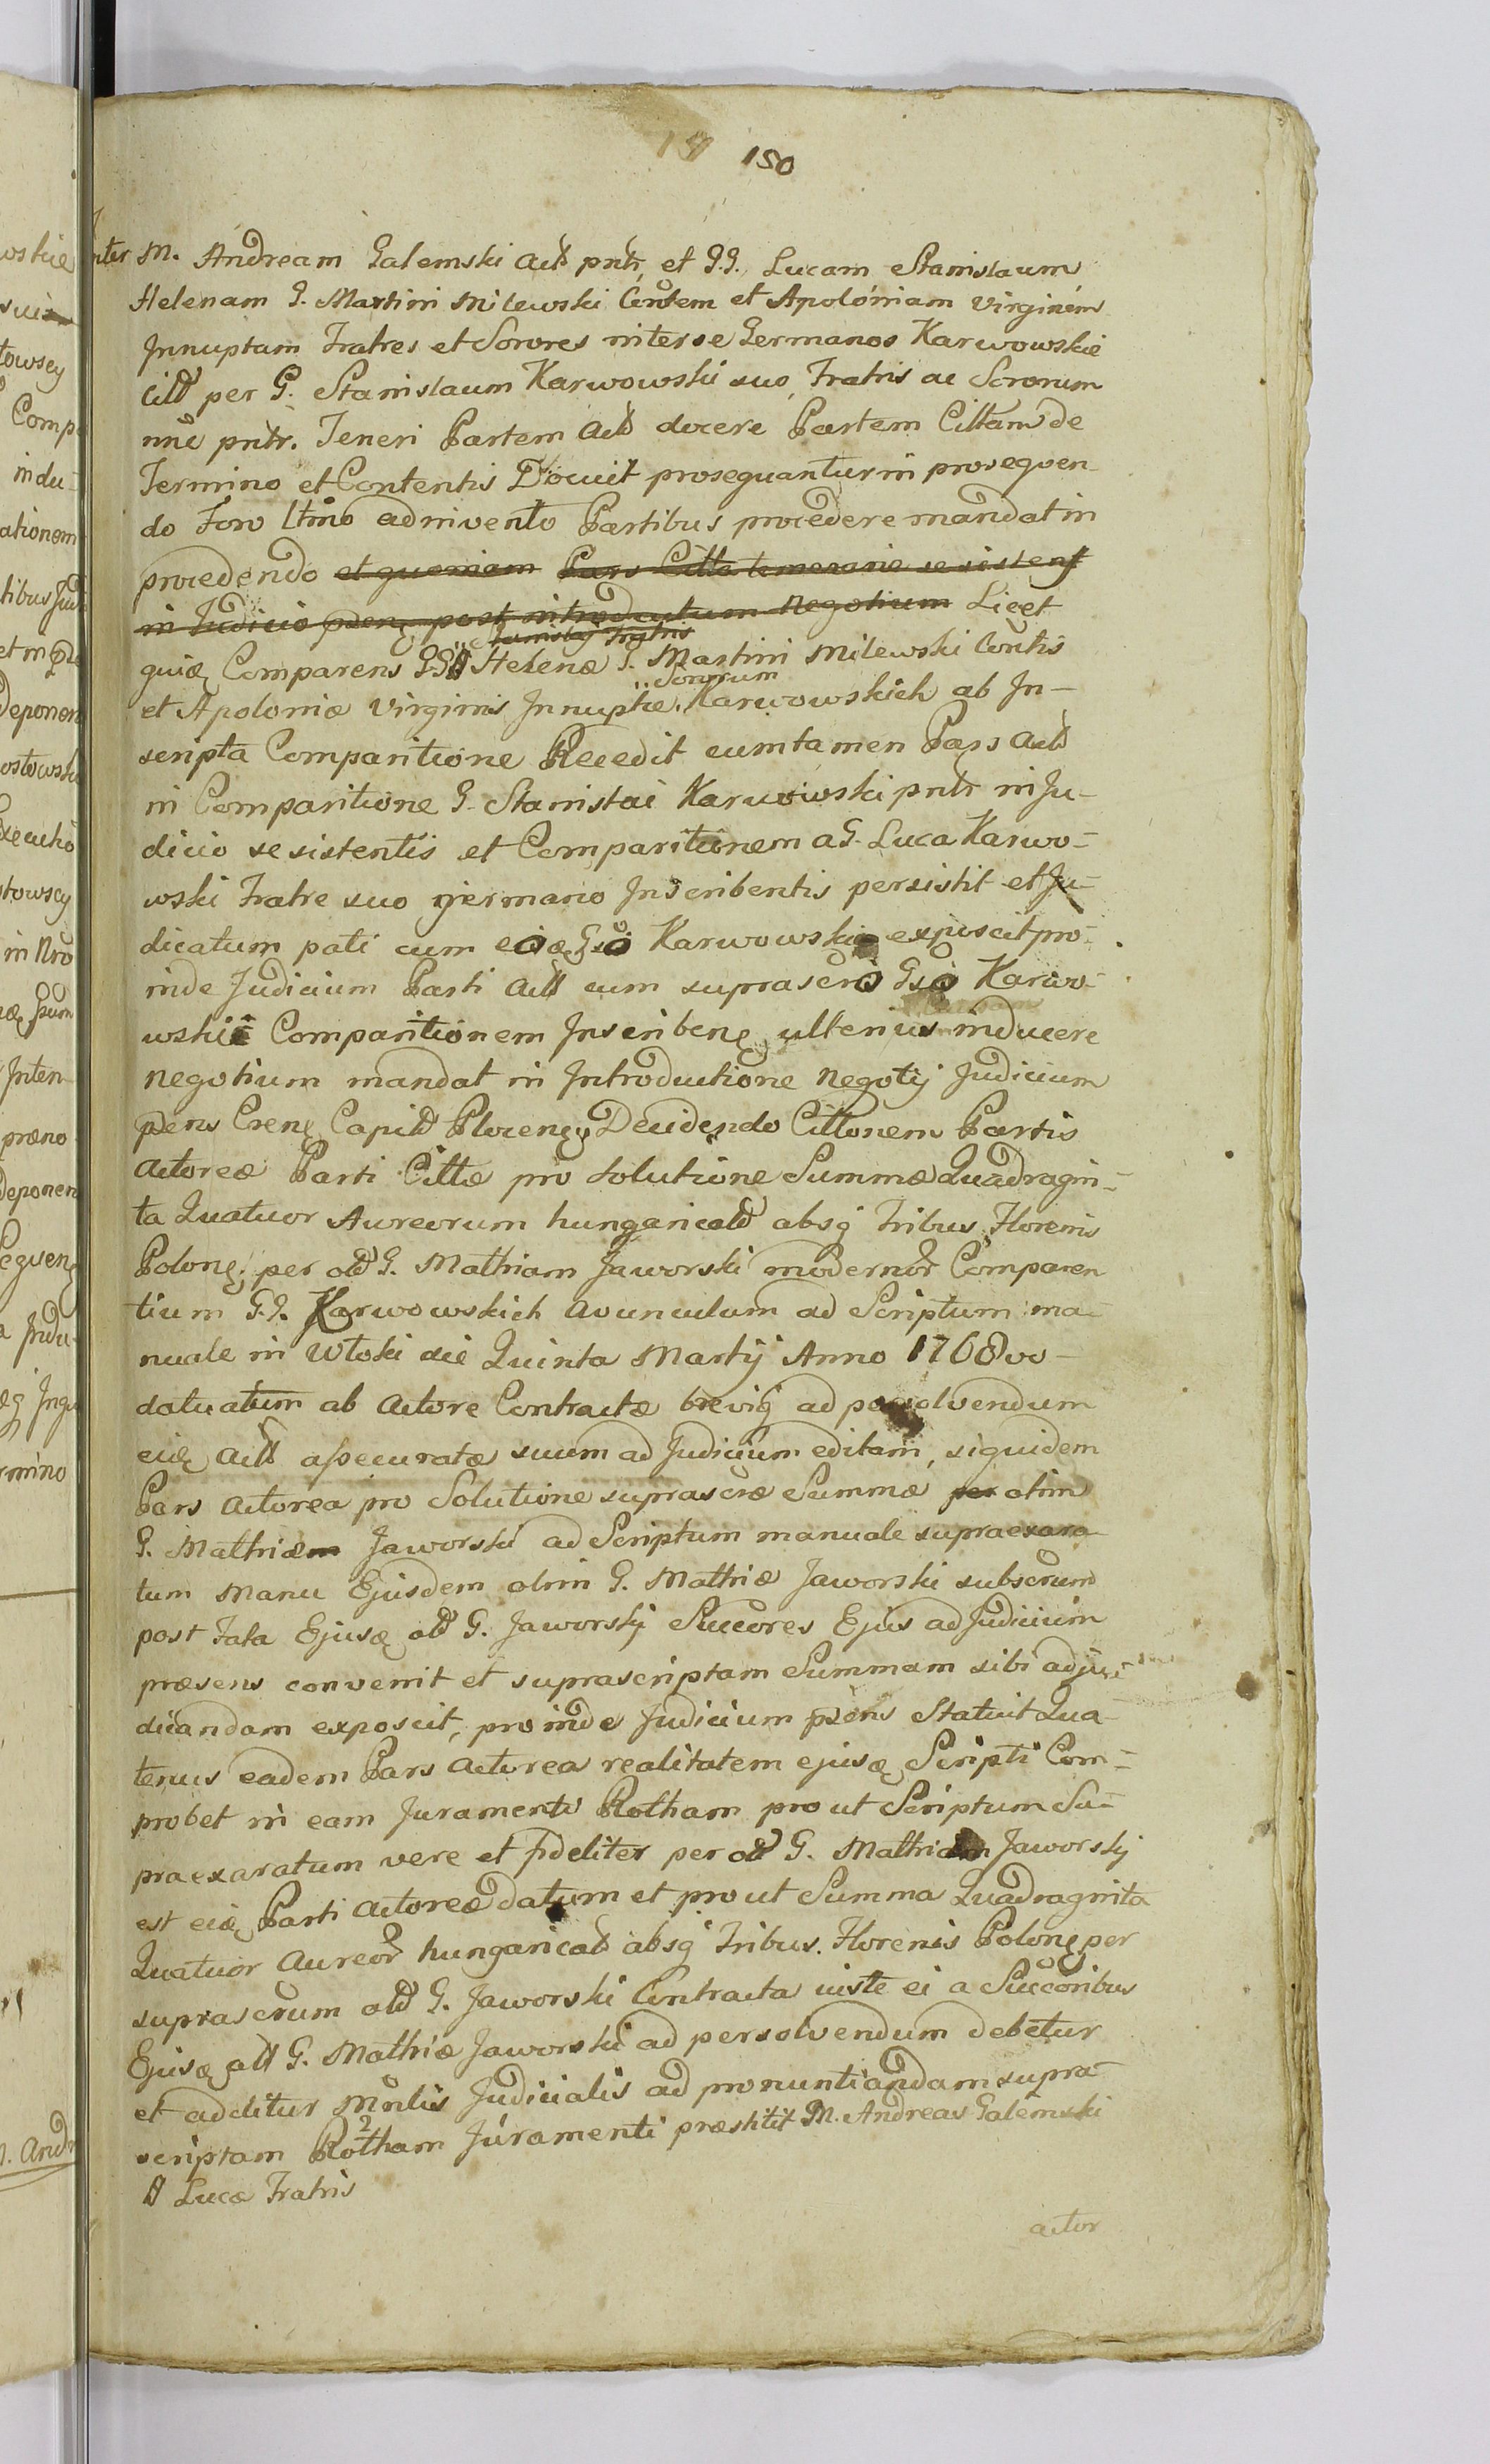 150
Inter M. Andream Galemski Actt pntr, et G.G. Lucam Stanislaum
Helenam G. Martini Milewski Contem et Apoloniam Virginem
Innuptam Fratres et Sorores inter se Germanos Karwowskie
Citt per G. Stanislaum Karwowski suo, Fratris ac Sororum
nne pntr. Teneri Partem Actt docere Partem Cittam de
Termino et Contentis Docuit prosequantur in prosequen
do Foro Ltmo adinvento Partibus procedere mandat in
procedendo et quoniam Pars Citta temerarie se sistens
in Judicio pdeng post introductum Negotium Licet
Stanislai Fratris
quidę Comparens GG Helenæ G. Martini Milewski Contis
Sororum
et Apoloniæ Virginis Innuptæ Karwowskich ab In-
scripta Comparitione Recedit cum tamen Pars Actt
in Comparitione G. Stanislai Karwowski pntr in Ju-
dicio se sistentis et Comparitionem a G. Luca Karwo-
wski Fratre suo germano Inscribentis persistit et Ju-
dicatum pati cum eodę Gso Karwowski exposcit pro-
inde Judicium Parti Actt cum suprascrio Gso Karwo-
wski Comparitionem Inscribenę ulterius inducere
negotium mandat in Introductione Negotij Judicium
pdens Crenę Capitt Plocenę Decidendo Cittonem Partis
Actoreæ Parti Cittæ pro Solutione Summæ Quadragin-
ta Quatuor Aureorum hungaricalt absq Tribus Florenis
Polonę, per olt G. Mathiam Jaworski modernor Comparen
tium G.G. Karwowskich Avunculum ad Scriptum ma-
nuale in Włoki die Quinta Martij Anno 1768vo
datuatum ab Actore Contractæ brevią ad persolvendum
eidę Actt assecuratæ suum ad Judicium editam, siquidem
Pars Actorea pro Solutione suprascræ Summæ per olim
G. Mathiam Jaworski ad Scriptum manuale supraexara-
tum Manu Ejusdem olim G. Mathiæ Jaworski subscrum
post Fata Ejusdę olt G. Jaworskij Succores Ejus ad Judicium
præsens convenit et suprascriptam Summam sibi adju-
dicandam exposcit, proinde Judicium pdens Statuit Qua-
tenus eadem Pars Actorea realitatem ejusdę Scripti Com-
probet in eam Juramenti Rotham prout Scriptum Su-
praexaratum vere et fideliter per olt G. Mathiam Jaworskij
est eidę Parti Actoreæ datum et prout Summa Quadraginta
Quatuor Aureor hungaricalt absq Tribus. Florenis Polonę per
suprascrum olt G. Jaworski Contracta iuste ei a Succoribus
Ejusdę olt G. Mathiæ Jaworski ad persolvendum debetur
et additur Mnlis Judicialis ad pronuntiandam supra-
scriptam Rotham Juramenti præstitit M. Andreas Galemski
Lucæ Fratris
actor